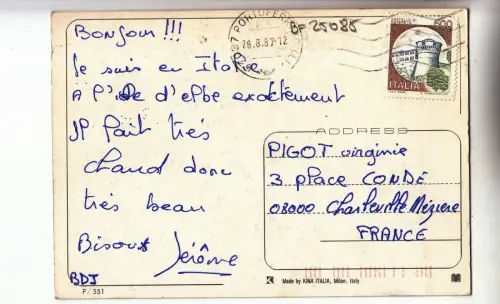 BONJOUR !!!
Je suis en Italie
A l'île d'elbe exactement
Il fait très
chaud donc
très beau
Bisous Jérôme
BDJ
F/551
57037 PORTOFERRAIO (LI)
26.8.87-12
B=25085
500
ITALIA
ADDRESS
PIGOT virginie
3 place CONDÉ
08000 Charleville Mézière
FRANCE
K Made by KINA ITALIA, Milan, Italy